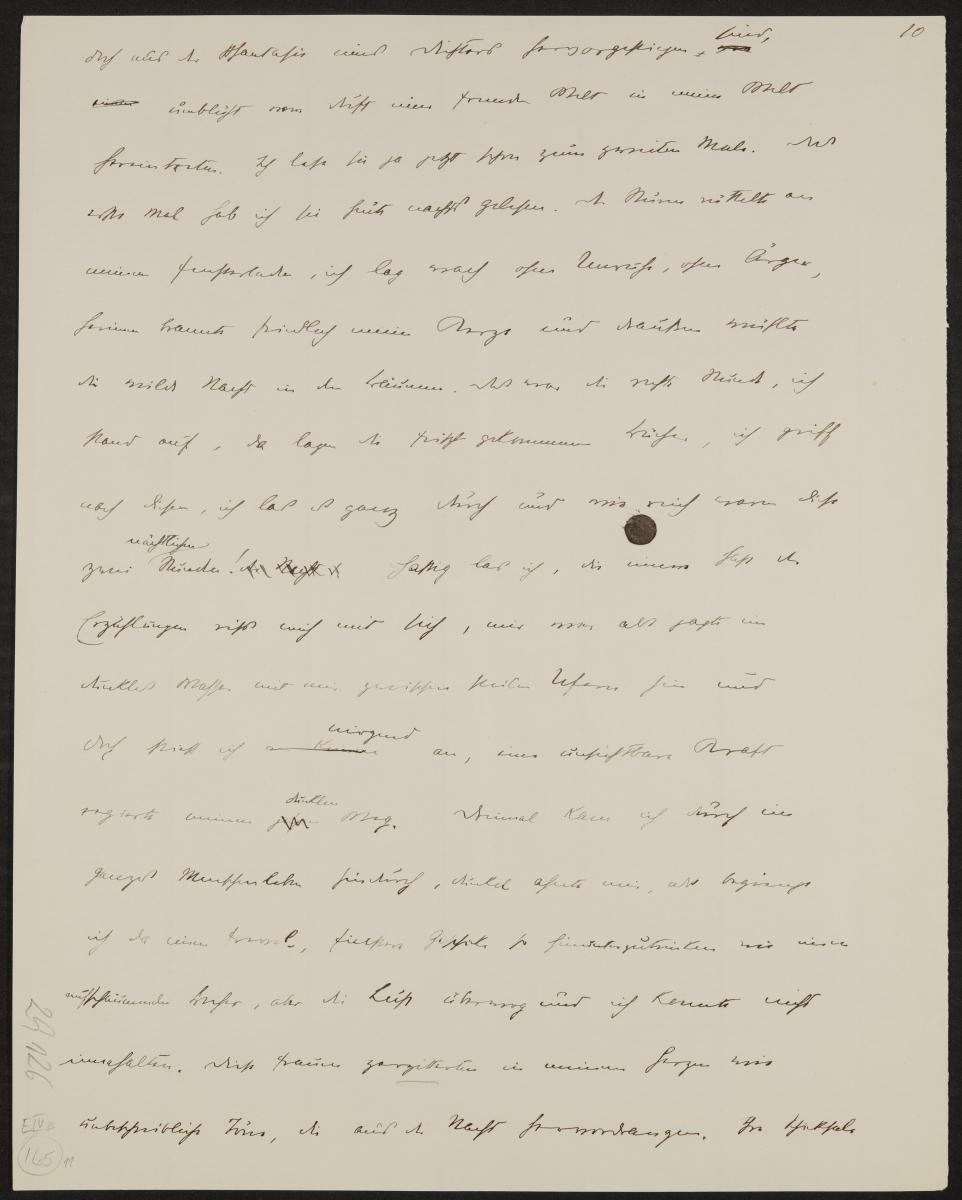 10
doch aus der Phantasie eines Dichters hervorgestiegen sind,
unbewußt vom Duft einer fremden Welt in meine Welt
hereintreten. Ich lese sie ja jetzt schon zum zweiten Male. Das
erste Mal hab ich sie heute nachts gelesen. Der Sturm rüttelte an
meinen Fensterladen, ich lag wach ohne Unruhe, ohne Ärger,
herinnen brannte friedlich meine Kerze und draußen wühlte
die wilde Nacht in den Bäumen. Das war die rechte Stunde, ich
stand auf, da lagen die frisch gekommenen Bücher, ich griff
nach diesem, ich las es ganz durch und wie reich waren diese
nächtlichen
zwei Stunden! Die Nacht Hastig las ich, die innere Hast der
Erzählungen riß mich mit sich, mir war als jagte ein
dunkles Wasser mit mir zwischen steilen Ufern hin und
nirgend
doch stieß ich an, eine unsichtbare Kraft
dunklen
regierte meinen Weg. Dreimal kam ich durch ein
ganzes Menschenleben hindurch, dunkel ahnte mir, als beginge
ich da einen Frevel, finstere Geschicke so hinunterzutrinken wie einen
aufschäumenden Becher, aber die Lust überwog und ich konnte nicht
innehalten. Diese Frauen zerzitterten in meinem Herzen wie
unbeschreibliche Töne, die aus der Nacht hervordrangen. Ihre Schicksale
29 126
E IV B
165 11